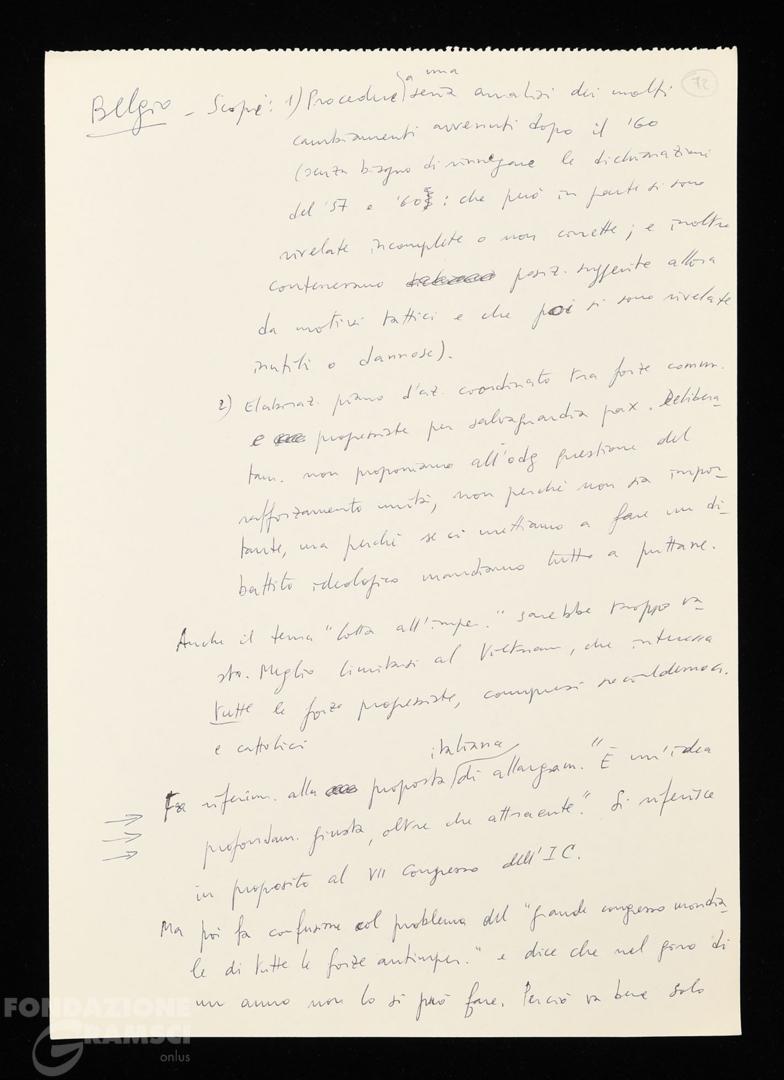 72
Belgio - Scopi: 1) Procedere a una seria analisi dei molti
cambiamenti avvenuti dopo il '60
(senza bisogno di rinnegare le dichiarazioni
del '57 e '60: che però in parte si sono
rivelate incomplete o non corrette; e inoltre
contenevano posiz. suggerite allora
da motivi tattici e che poi si sono rivelate
inutili o dannose).
2) Elaboraz. piano d'az. coordinato tra forze comun.
e progressiste per salvaguardia pax. Delibera-
tam. non proponiamo all'odg questione del
rafforzamento unità, non perché non sia impor-
tante, ma perché se ci mettiamo a fare un di-
battito ideologico mandiamo tutto a puttane.
Anche il tema "lotta all'imper." sarebbe troppo va-
sto. Meglio limitarsi al Vietnam, che interessa
tutte le forze progressiste, compresi socialdemocr.
e cattolici
Fa riferim. alla proposta italiana di allargam. "È un'idea
profondam. giusta, oltre che attraente". Si riferisce
in proposito al VII Congresso dell'IC.
Ma poi fa confusione col problema del "grande congresso mondia-
le di tutte le forze antimper." e dice che nel giro di
un anno non lo si può fare. Perciò va bene solo
FONDAZIONE
GRAMSCI
onlus